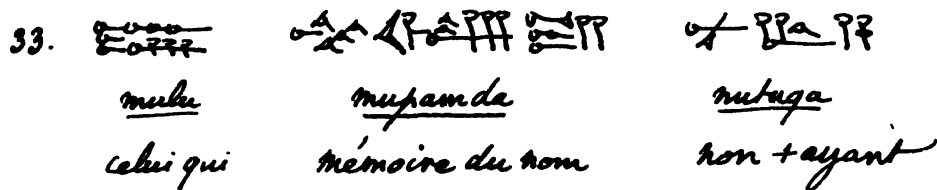 33.
mulu mupamda nutuga
celui qui mémoire du nom non + ayant